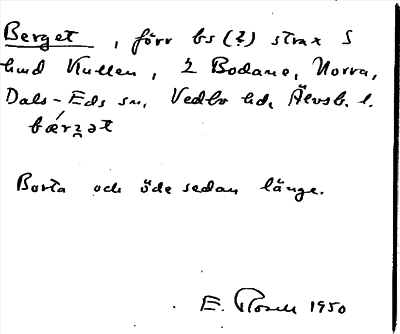 Berget, förr bs (?) strax S
hmd Kullen, 2 Bodane, Norra,
Dals-Eds sn, Vedbo hd, Älvsb. l.
bærʒət
Borta och öde sedan länge.
E. 1950